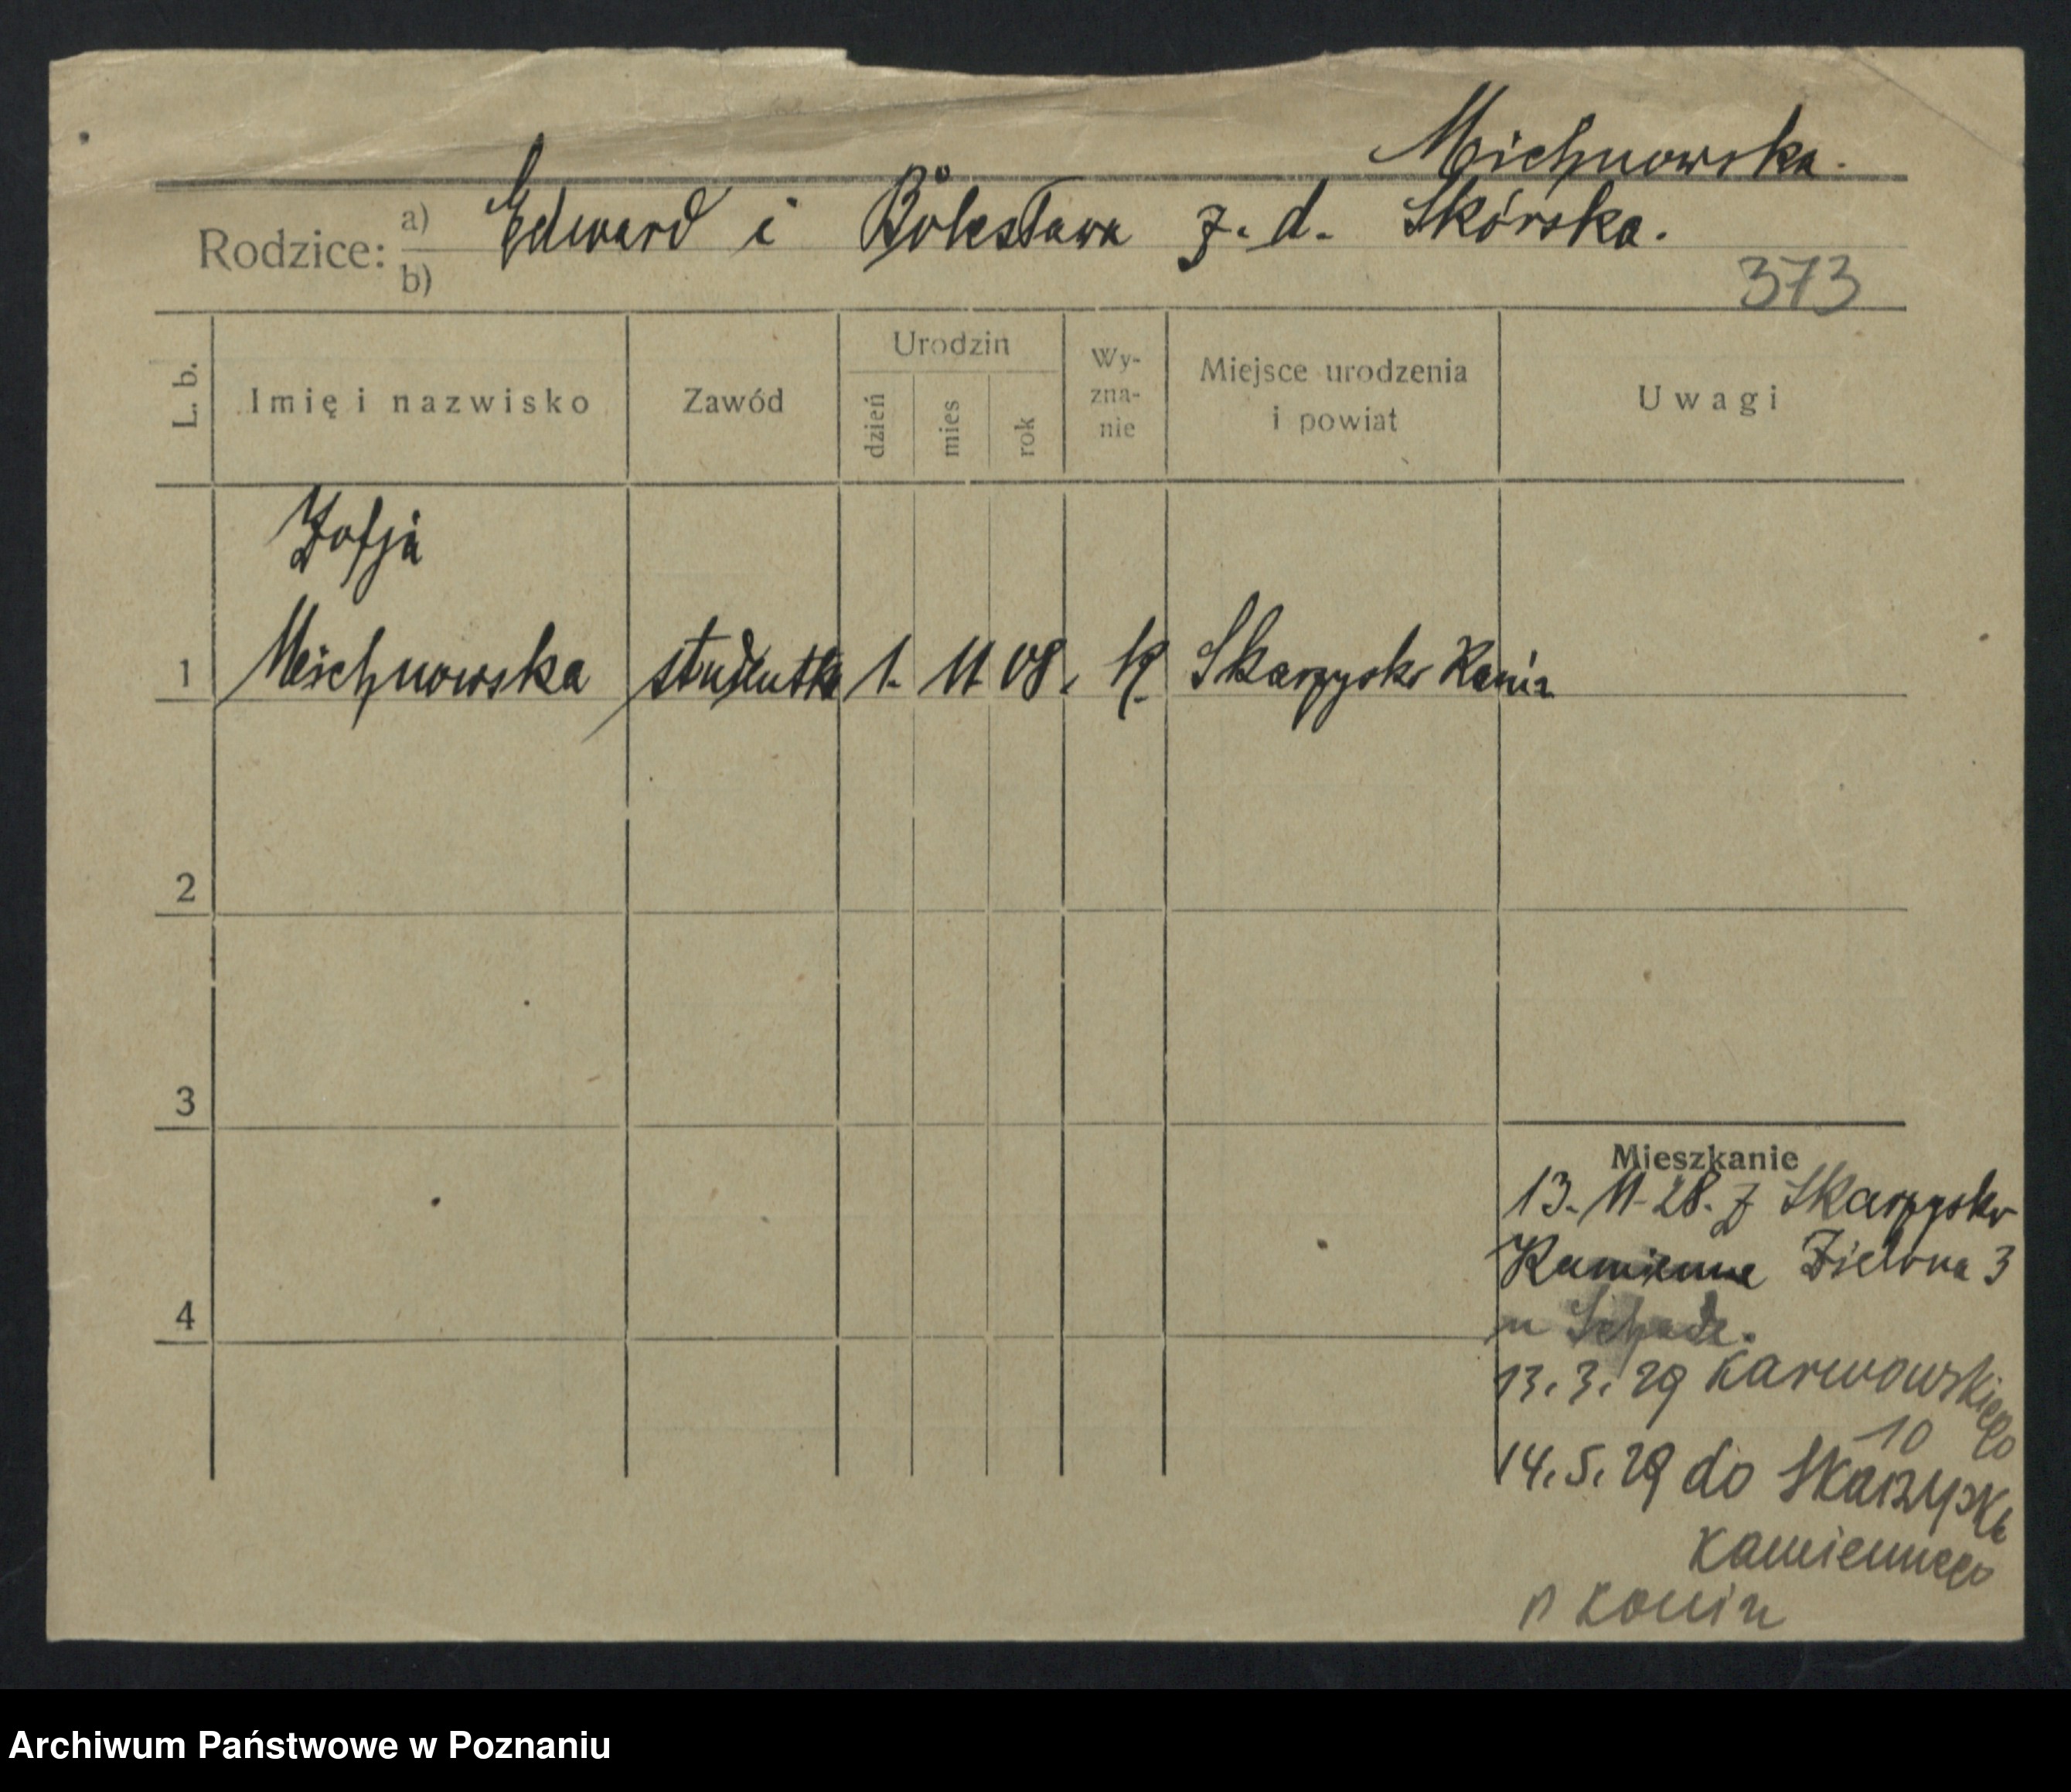 Michnowska.
Rodzice: a) Edward i Bolesława z. d. Skórska.
b)
373
L. b. Imię i nazwisko Zawód Urodzin dzień mies rok Wy-zna-nie Miejsce urodzenia i powiat Uwagi
Zofja
1 Michnowska studentka 1. 11 08. k. Skarzysko Konin
2
3
Mieszkanie
13. 11. 28. z Skarzysko
Kamienne Zielona 3
4
13. 3. 29 Karwowskiego
10
14. 5. 29 do Skarzyska
Kamiennego
p Konin
Archiwum Państwowe w Poznaniu